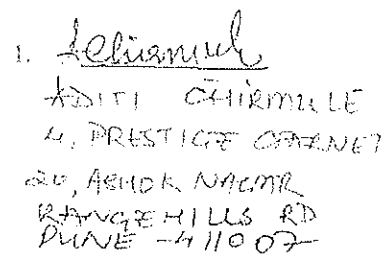 1. AChirmule
ADITI CHIRMULE
4, PRESTIGE GARNET
20, ASHOK NAGAR
RANGE HILLS RD
PUNE - 411007